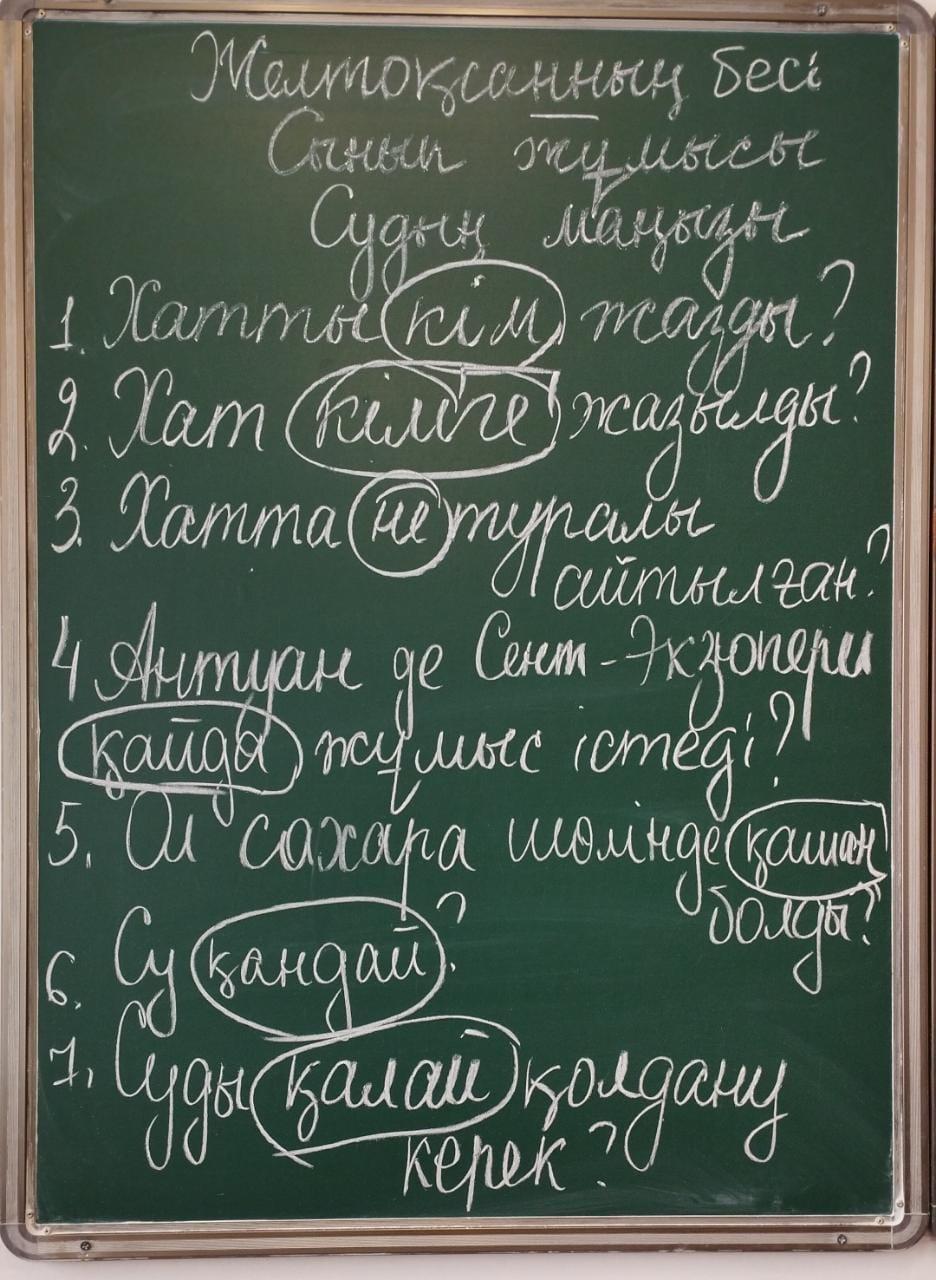 Желтоқсанның бесі
Сынып жұмысы
Судың маңызы
1. Хатты кім жазды?
2. Хат кімге жазылды?
3. Хатта не туралы
айтылған?
4 Антуан де Сент-Экзюпери
қайда жұмыс істеді?
5. Ол сахара шөлінде қашан
болды?
6. Су қандай?
7. Суды қалай қолдану
керек?